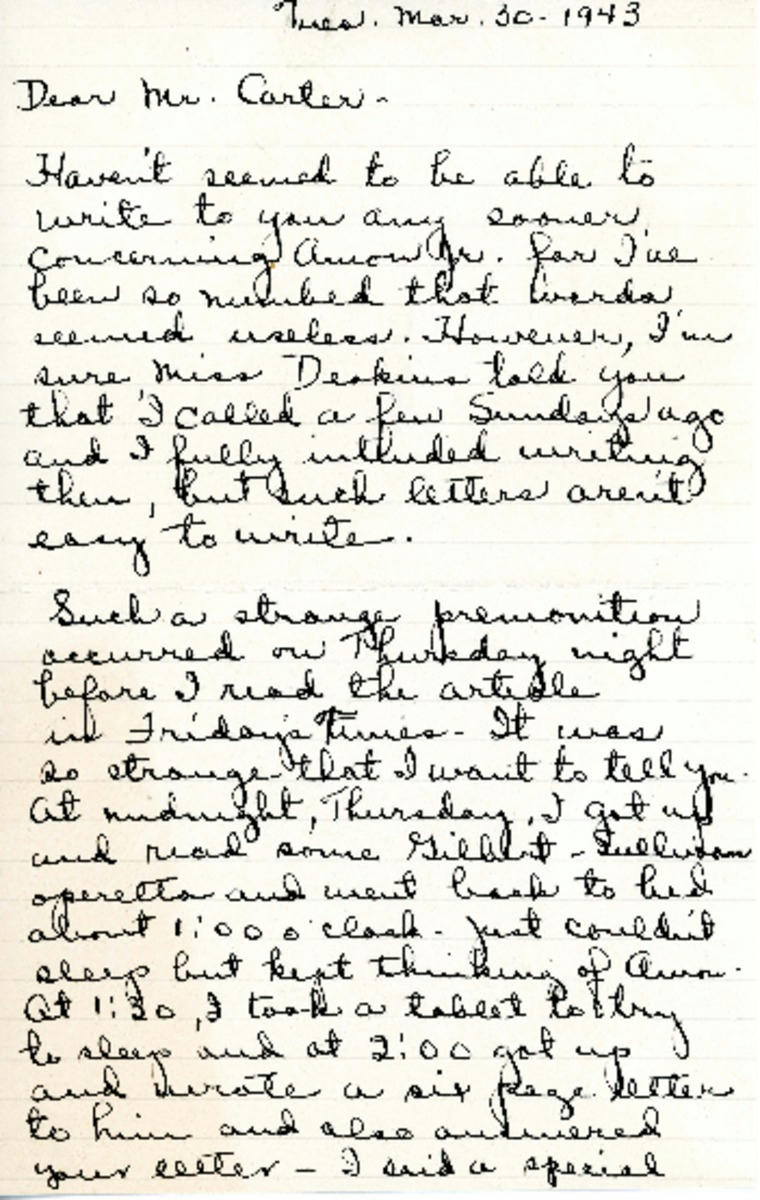 Tues. Mar. 30 - 1943
Dear Mr. Carter -
Haven't seemed to be able to
write to you any sooner
concerning Amon Jr. for I've
been so numbed that words
seemed useless. However, I'm
sure Miss Deakins told you
that I called a few Sundays ago
and I fully intended writing
then, but such letters aren't
easy to write.
Such a strange premonition
occurred on Thursday night
before I read the article
in Friday's Times - It was
so strange that I want to tell you.
At midnight, Thursday, I got up
and read some Gilbert - Sullivan
operetta and went back to bed
about 1:00 o'clock - just couldn't
sleep but kept thinking of Amon.
At 1:30, I took a tablet to try
to sleep and at 2:00 got up
and wrote a six page letter
to him and also answered
your letter - I said a special